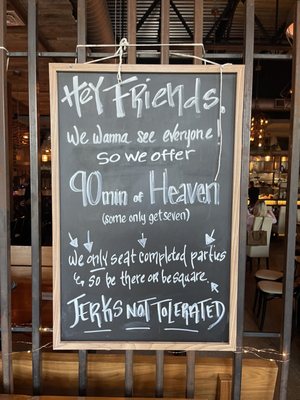 Hey Friends!
We wanna see everyone!
So we offer
90 min of Heaven
(some only get seven)
We only seat completed parties
& so be there or be square.
JERKS NOT TOLERATED